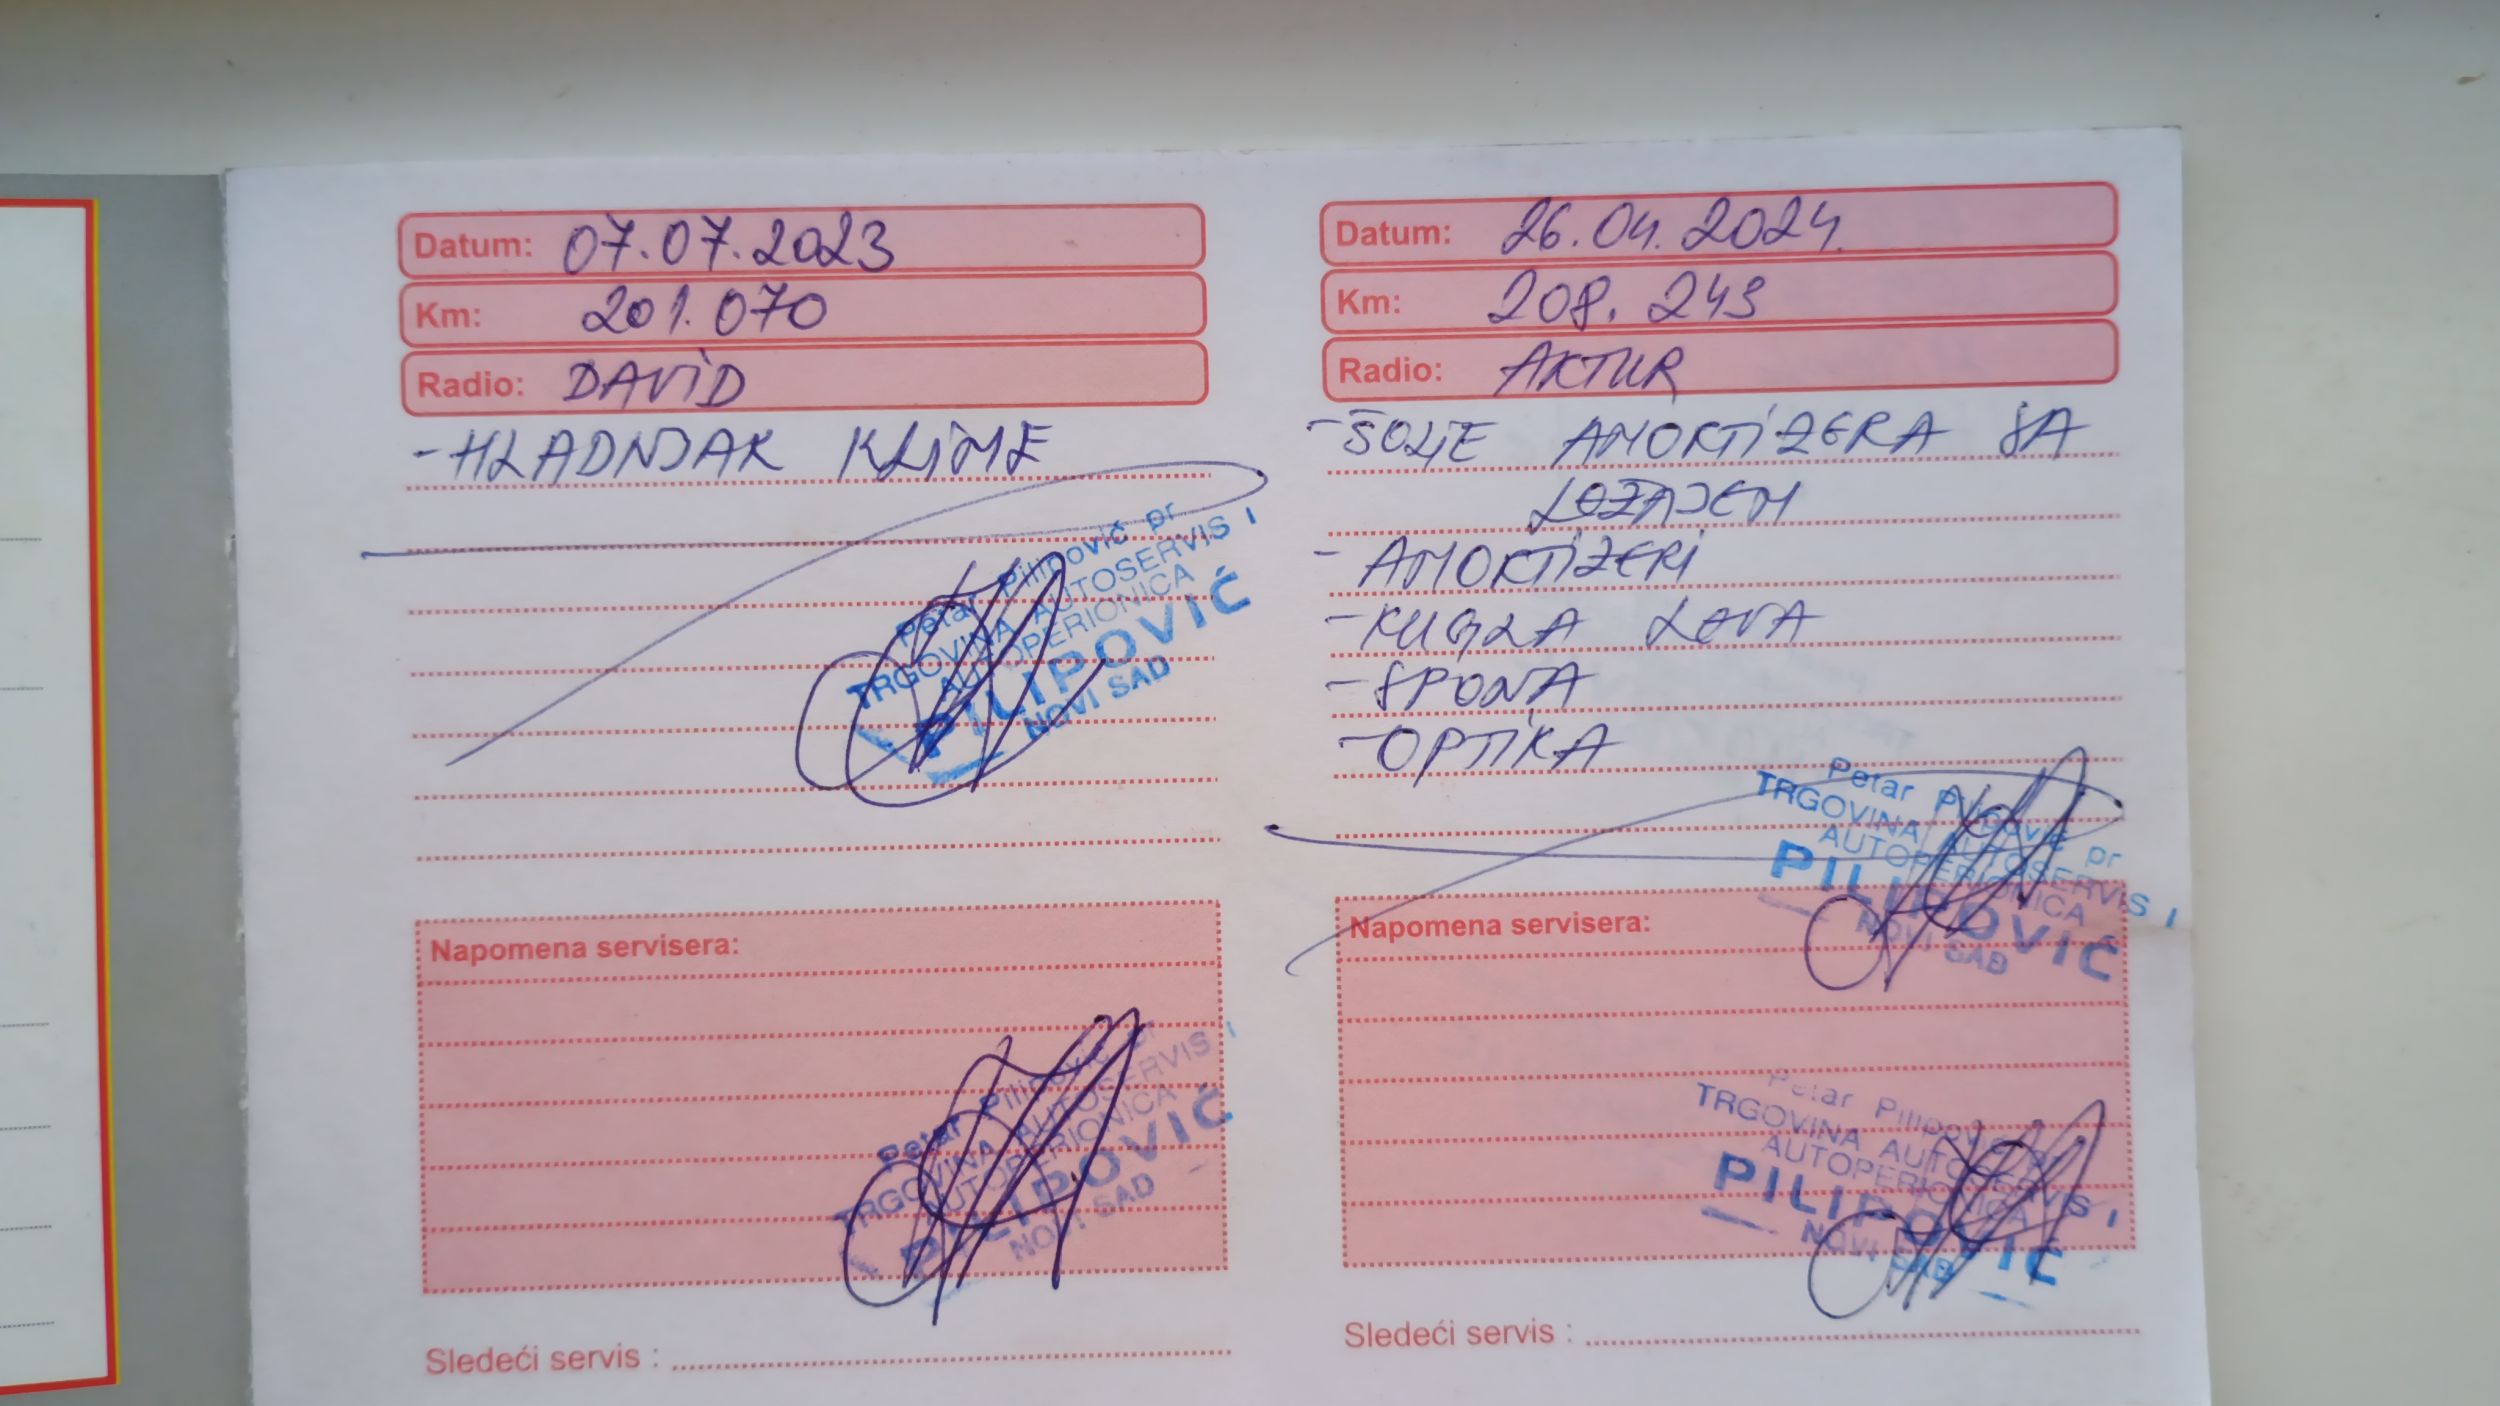 Datum: 07.07.2023
Km: 201.070
Radio: DAVID
- HLADNJAK KLIME
Petar Pilipović pr
TRGOVINA AUTOSERVIS I
AUTOPERIONICA
PILIPOVIĆ
NOVI SAD
Napomena servisera:
Petar Pilipović pr
TRGOVINA AUTOSERVIS I
AUTOPERIONICA
PILIPOVIĆ
NOVI SAD
Sledeći servis :
Datum: 26.04.2024.
Km: 208.243
Radio: ARTUR
- ŠOLJE AMORTIZERA SA
LEŽAJEM
- AMORTIZERI
- KUGLA LEVA
- SPONA
- OPTIKA
Petar Pilipović pr
TRGOVINA AUTOSERVIS I
AUTOPERIONICA
PILIPOVIĆ
NOVI SAD
Napomena servisera:
Petar Pilipović pr
TRGOVINA AUTOSERVIS I
AUTOPERIONICA
PILIPOVIĆ
NOVI SAD
Sledeći servis :